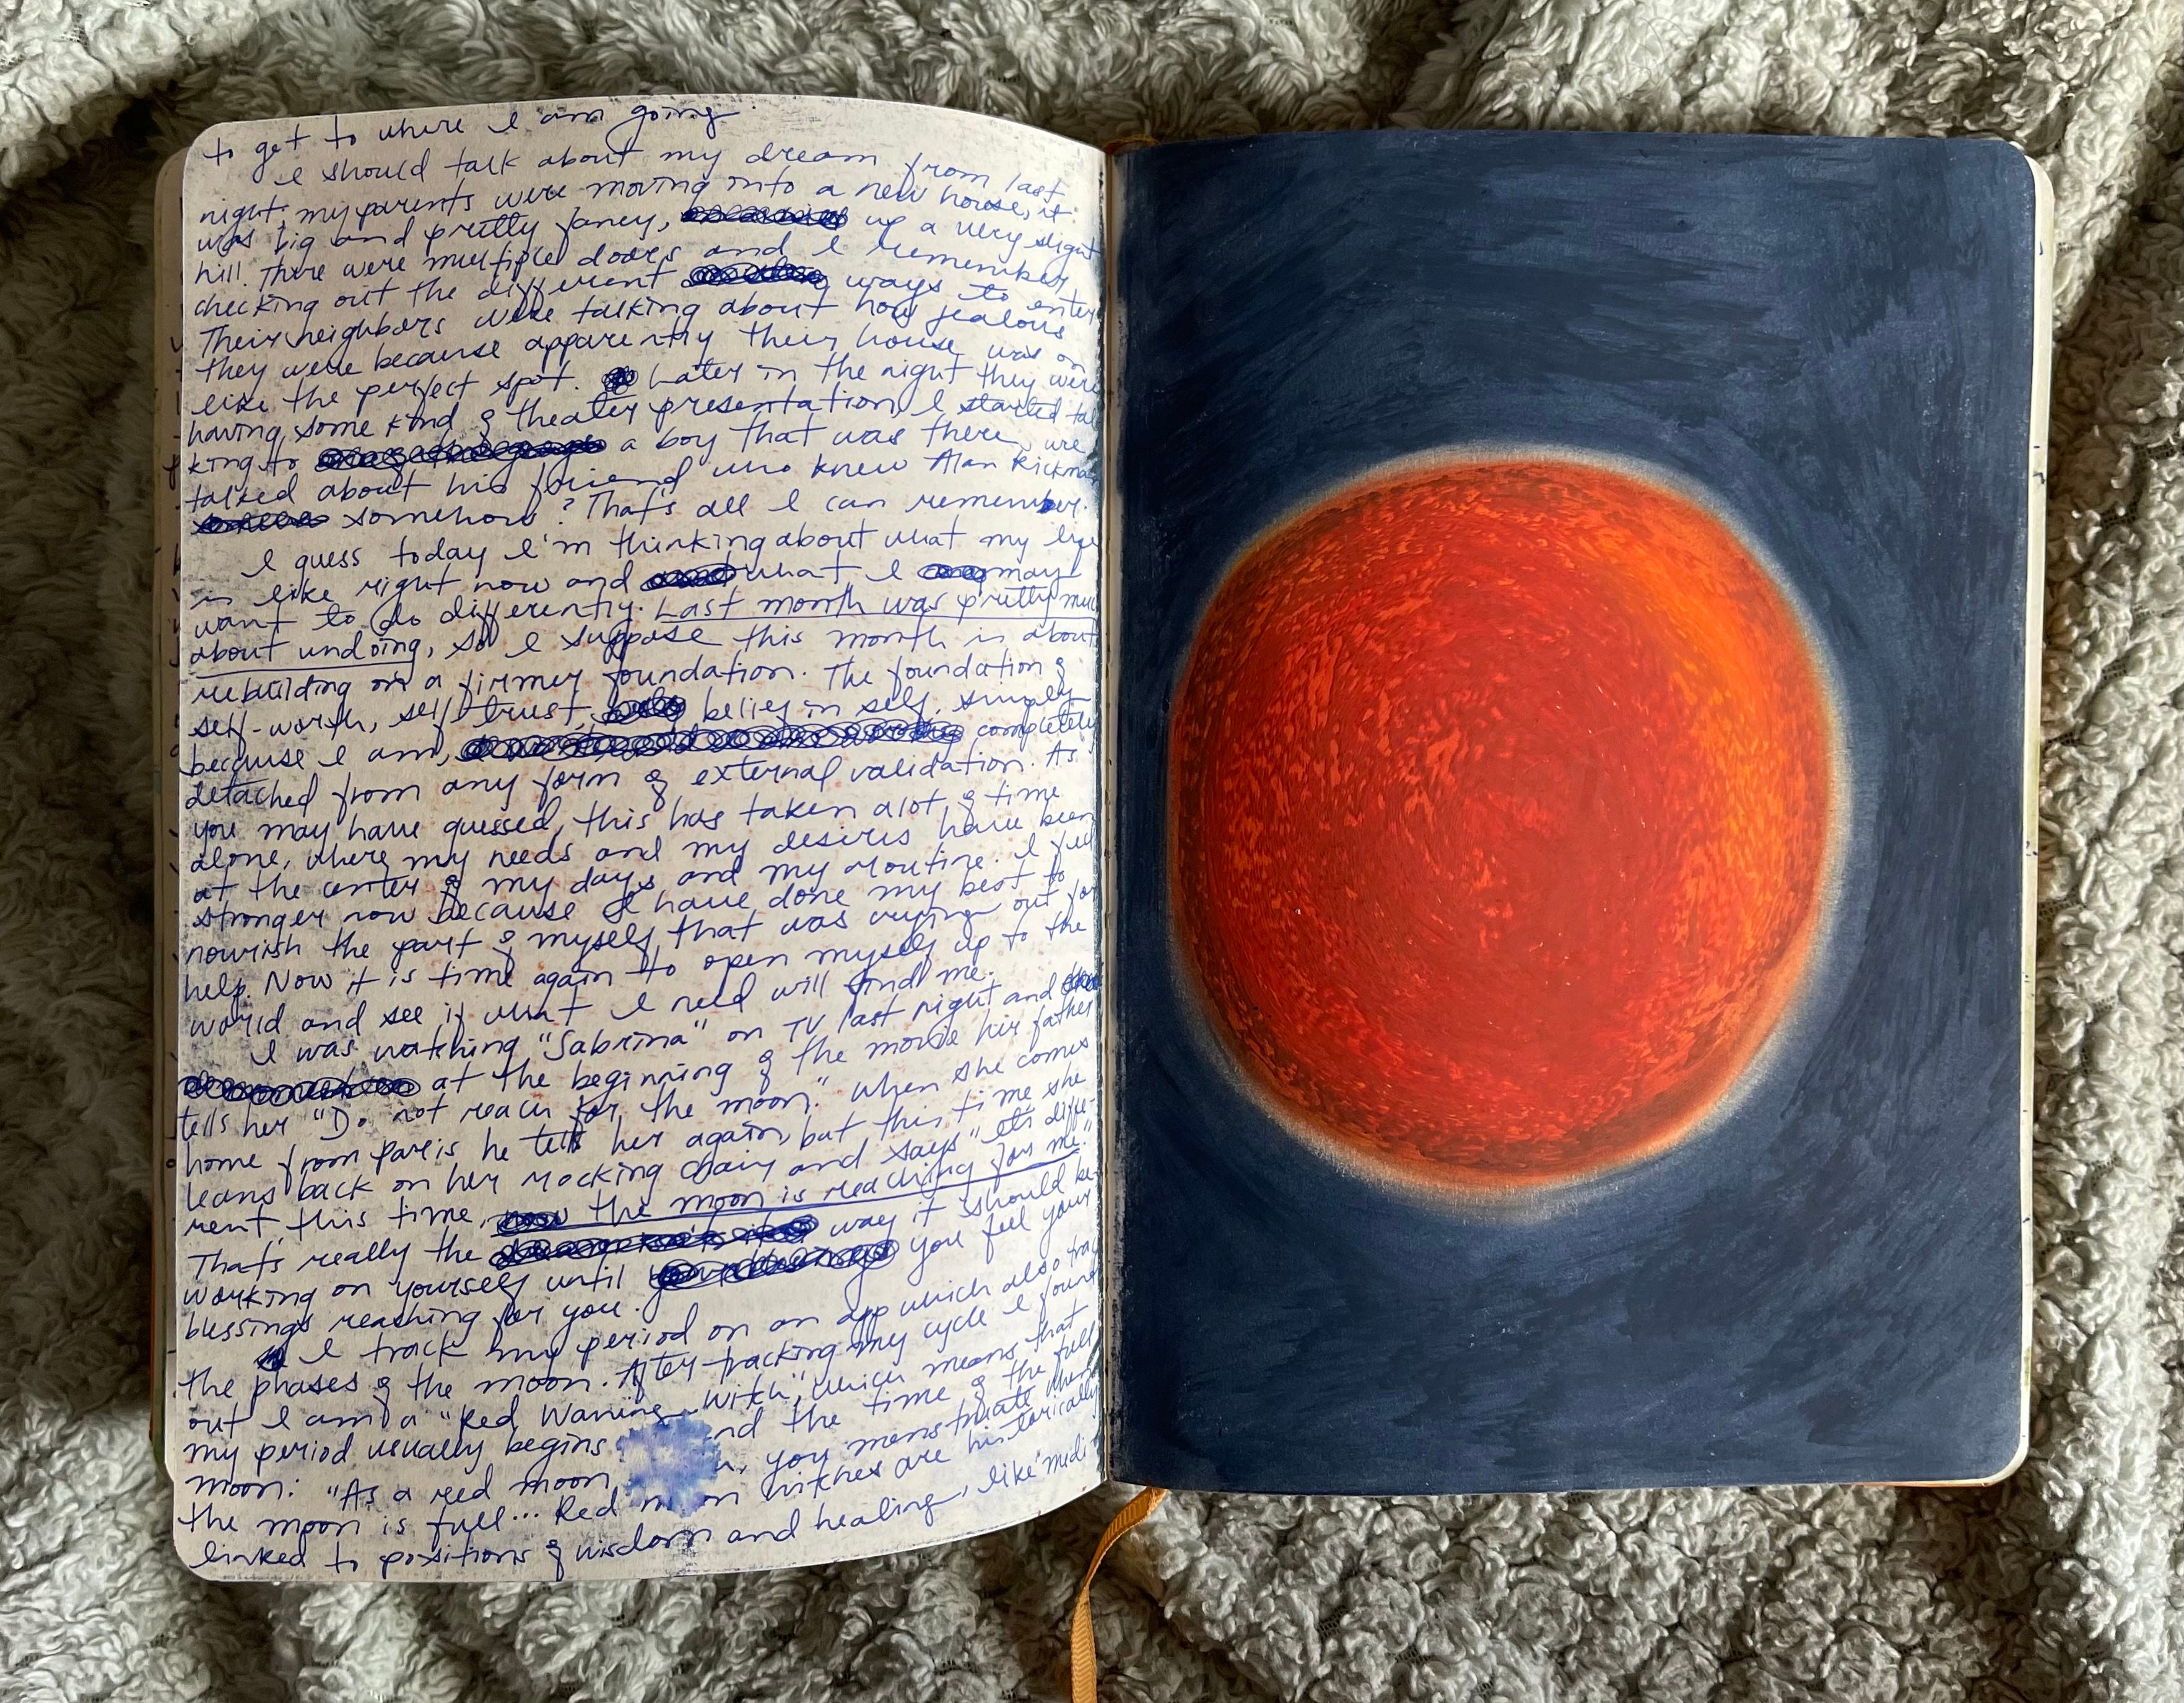 to get to where I am going.
I should talk about my dream from last
night: my parents were moving into a new house, it
was big and pretty fancy, up a very slight
hill. There were multiple doors and I remember
checking out the different ways to enter
Their neighbors were talking about how jealous
they were because apparently their house was on
like the perfect spot. Later in the night they were
having some kind of theater presentation, I started tal
king to a boy that was there, we
talked about his friend who knew Alan Rickman
somehow? That's all I can remember.
I guess today I'm thinking about what my life
is like right now and what I may
want to do differently. Last month was pretty much
about undoing, so I suppose this month is about
rebuilding on a firmer foundation. The foundation of
self-worth, self trust, belief in self, simply
because I am, completely
detached from any form of external validation. As
you may have guessed, this has taken alot of time
alone, where my needs and my desires have been
at the center of my days and my routine. I feel
stronger now because I have done my best to
nourish the part of myself that was crying out for
help. Now it is time again to open myself up to the
world and see if what I need will find me.
I was watching "Sabrina" on TV last night and
at the beginning of the movie her father
tells her "Do not reach for the moon." When she comes
home from paris he tells her again, but this time she
leans back on her rocking chair and says "it's diffe-
rent this time, the moon is reaching for me."
That's really the way it should be
working on yourself until you feel your
blessings reaching for you.
I track my period on an app which also trac
the phases of the moon. After tracking my cycle I found
out I am a "Red Waning Witch", which means that
my period usually begins nd the time of the full
moon: "As a red moon , you menstruate when
the moon is full... Red moon witches are historically
linked to positions of wisdom and healing, like medi-